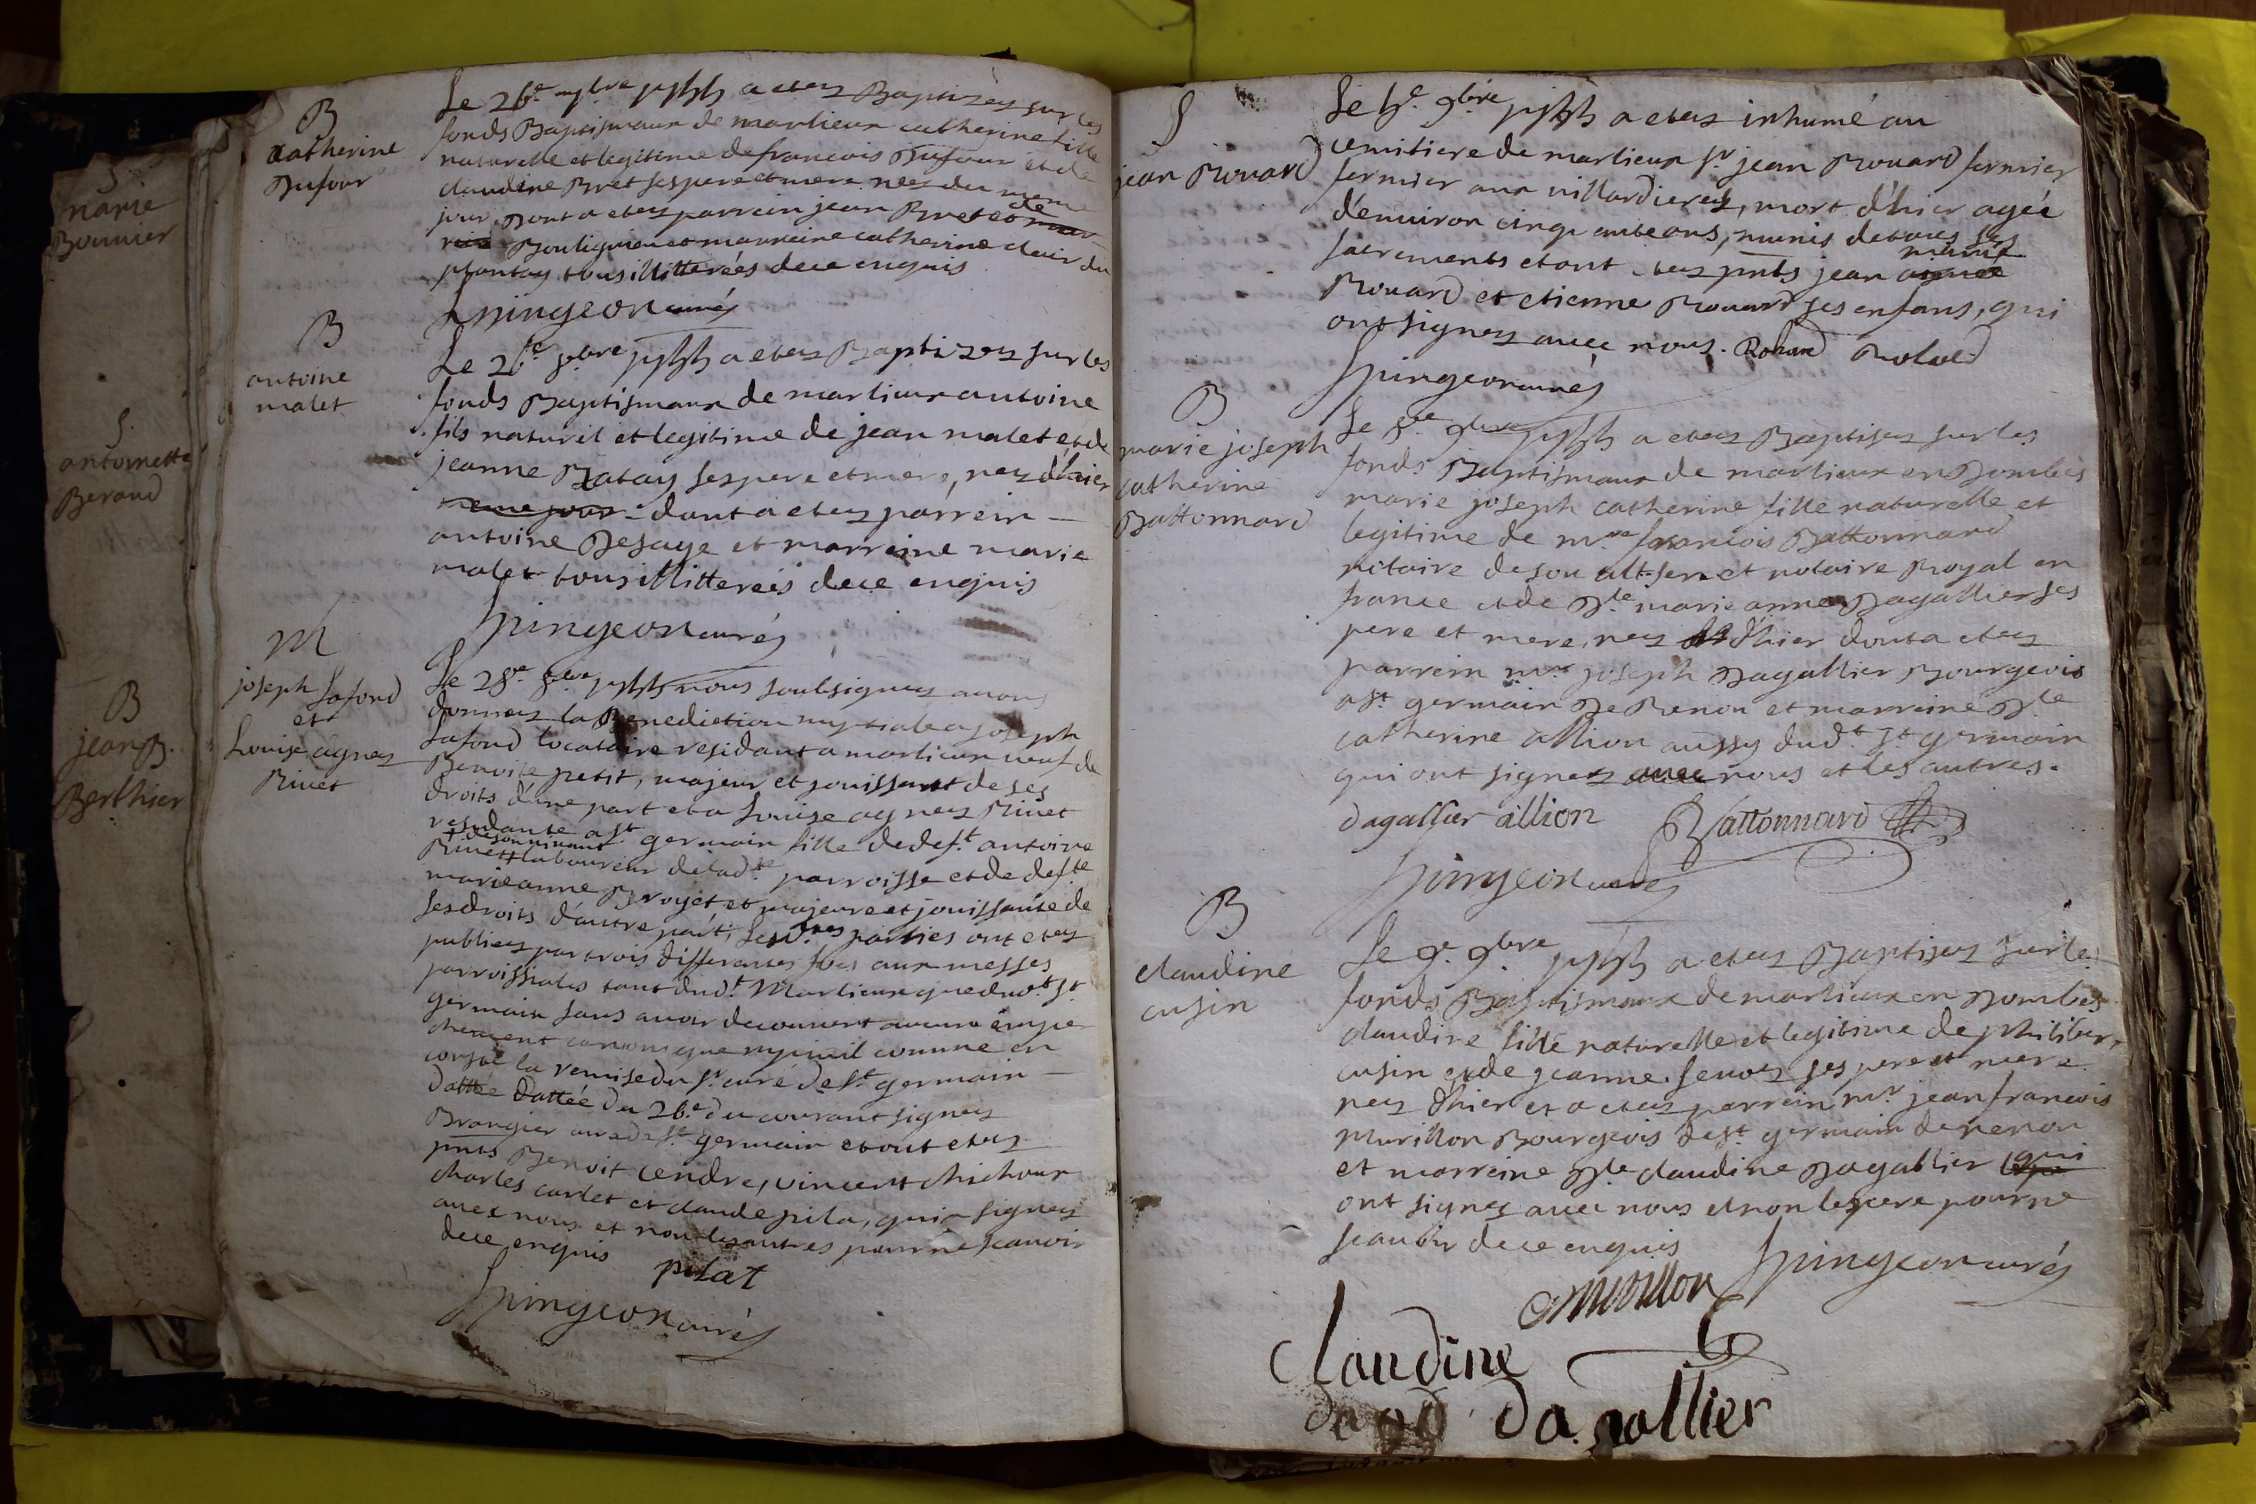 S.
marie
Bounier
S.
antoinette
Beraud
B
jean B.
Berthier
B
Catherine
Dufour
Le 26e. 7bre a etez Baptizez sur les
fonds Baptismaux de marlieux catherine fille
naturelle et legitime de francois Dufour et de
claudine Bret ses pere et mere nez du meme
jour, dont a etez parrein jean Bret de
Bouligneu et marreine catherine clair du
plantay tous illitterées de ce enquis
Spingeon curéz
B
antoine
malet
Le 26e 8bre a etez Baptizez sur les
fonds Baptismaux de marlieux antoine
fils naturel et legitime de jean malet et de
jeanne Batay ses pere et mere, nez d'hier
meme jour dont a etez parrein
antoine Desaye et marreine marie
malet tous illitterées de ce enquis
Spingeon curéz
M
joseph Lafond
et
Louise agnez
Rivet
Le 28e. 8bre nous soubsignez avons
donnez la Benediction nuptiale a joseph
Lafond locataire residant a marlieux veuf de
Benoite petit, majeur et jouissant de ses
droits d'une part et a Louise agnez Rivet
residante a st germain fille de deft. antoine
Rivet laboureur de lad.te parroisse et de defte
marieanne Broyet et majeure et jouissante de
ses droits d'autre part, Lesd.tes parties ont etez
publiez par trois differentes fois aux messes
parroissiales tant dud.t Marlieux que dud.t st.
germain sans avoir decouvert aucun empe
chement canonique ny civil comme en
conste la remise du sr. curé de st. germain
dattée dattée du 26e. du courant signez
Brangier curé de st. germain et ont etez
pnts Benoit Cendre, vincent chichoux
charles carlet et claude pila, qui a signez
avec nous et non les autres pour ne scavoir
de ce enquis
pilat
Spingeon curéz
S
jean Rouard
Le 5e. 9bre a etez inhumé au
cemitiere de marlieux sr jean Rouard fermier
fermier aux villardieres, mort d'hier agée
d'environ cinquante ans, munis de tous ses
sacrements etant etez pnts jean marie
Rouard et etienne Rouard ses enfans, qui
ont signez avec nous. Rohard Rolard
Spingeon curéz
B
marie joseph
catherine
Battonnard
Le 8e. 9bre a etez Baptisez sur les
fonds Baptismaux de marlieux en Dombes
marie joseph catherine fille naturelle et
legitime de mre francois Battonnard
notaire de son alt. ser. et notaire Royal en
france et de Dle. marie anne Dagallier ses
pere et mere, nez d'hier dont a etez
parrein mre joseph Dagallier Bourgeois
a st. germain De Renon et marreine Dle
catherine allion aussy dud.t st. germain
qui ont signez avec nous et les autres.
dagallier allion Battonnard
Spingeon curéz
B
claudine
cusin
Le 9e. 9bre a etez Baptisez sur les
fonds Baptismaux de marlieux en Dombes
claudine fille naturelle et legitime de philiber
cusin et de jeanne Sevoz ses pere et mere
nez d'hier et a etez parrein mr. jean francois
Murillon Bourgeois de st. germain de renon
et marreine Dle. claudine Dagallier qui
ont signez avec nous et non le pere pour ne
scavoir de ce enquis
Spingeon curéz
Murillon
Claudine
da. gallier